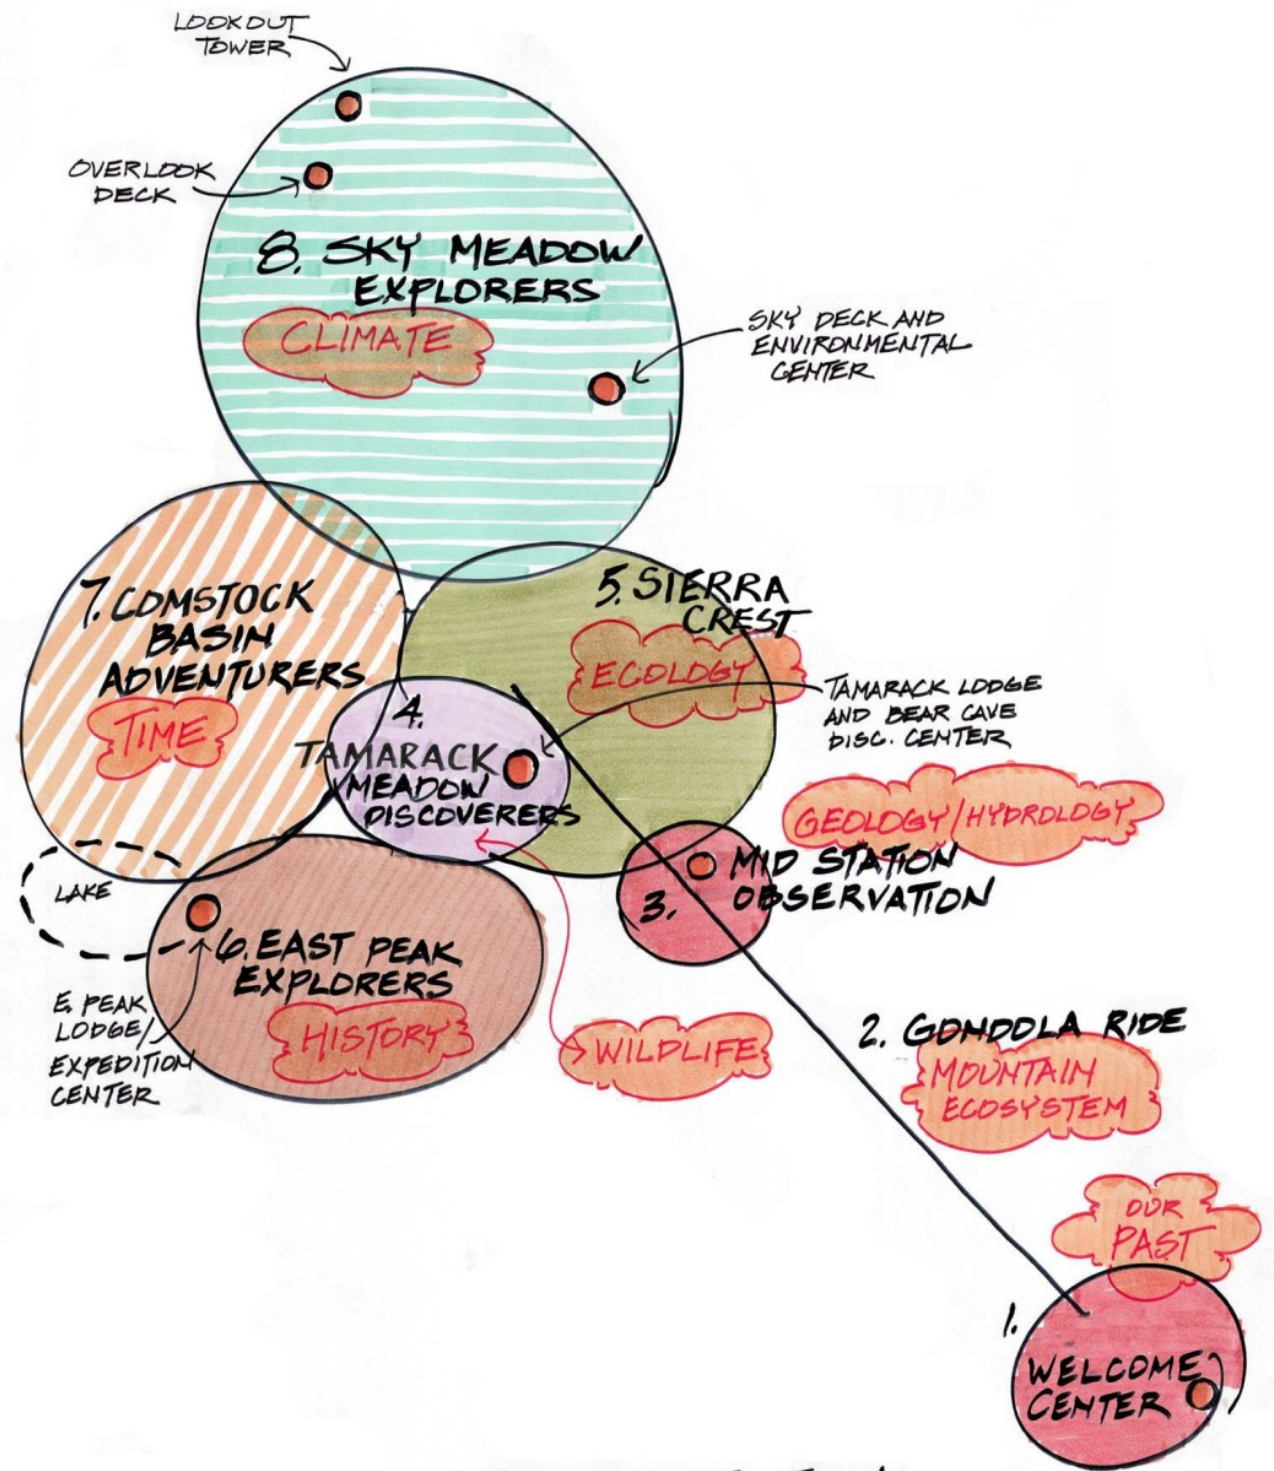 LOOKOUT
TOWER
OVERLOOK
DECK
8. SKY MEADOW
EXPLORERS
CLIMATE
SKY DECK AND
ENVIRONMENTAL
CENTER
7. COMSTOCK
BASIN
ADVENTURERS
TIME
5. SIERRA
CREST
ECOLOGY
TAMARACK LODGE
AND BEAR CAVE
DISC. CENTER
4.
TAMARACK
MEADOW
DISCOVERERS
GEOLOGY/HYDROLOGY
3. MID STATION
OBSERVATION
LAKE
6. EAST PEAK
EXPLORERS
HISTORY
E. PEAK
LODGE/
EXPEDITION
CENTER
WILDLIFE
2. GONDOLA RIDE
MOUNTAIN
ECOSYSTEM
OUR
PAST
1.
WELCOME
CENTER